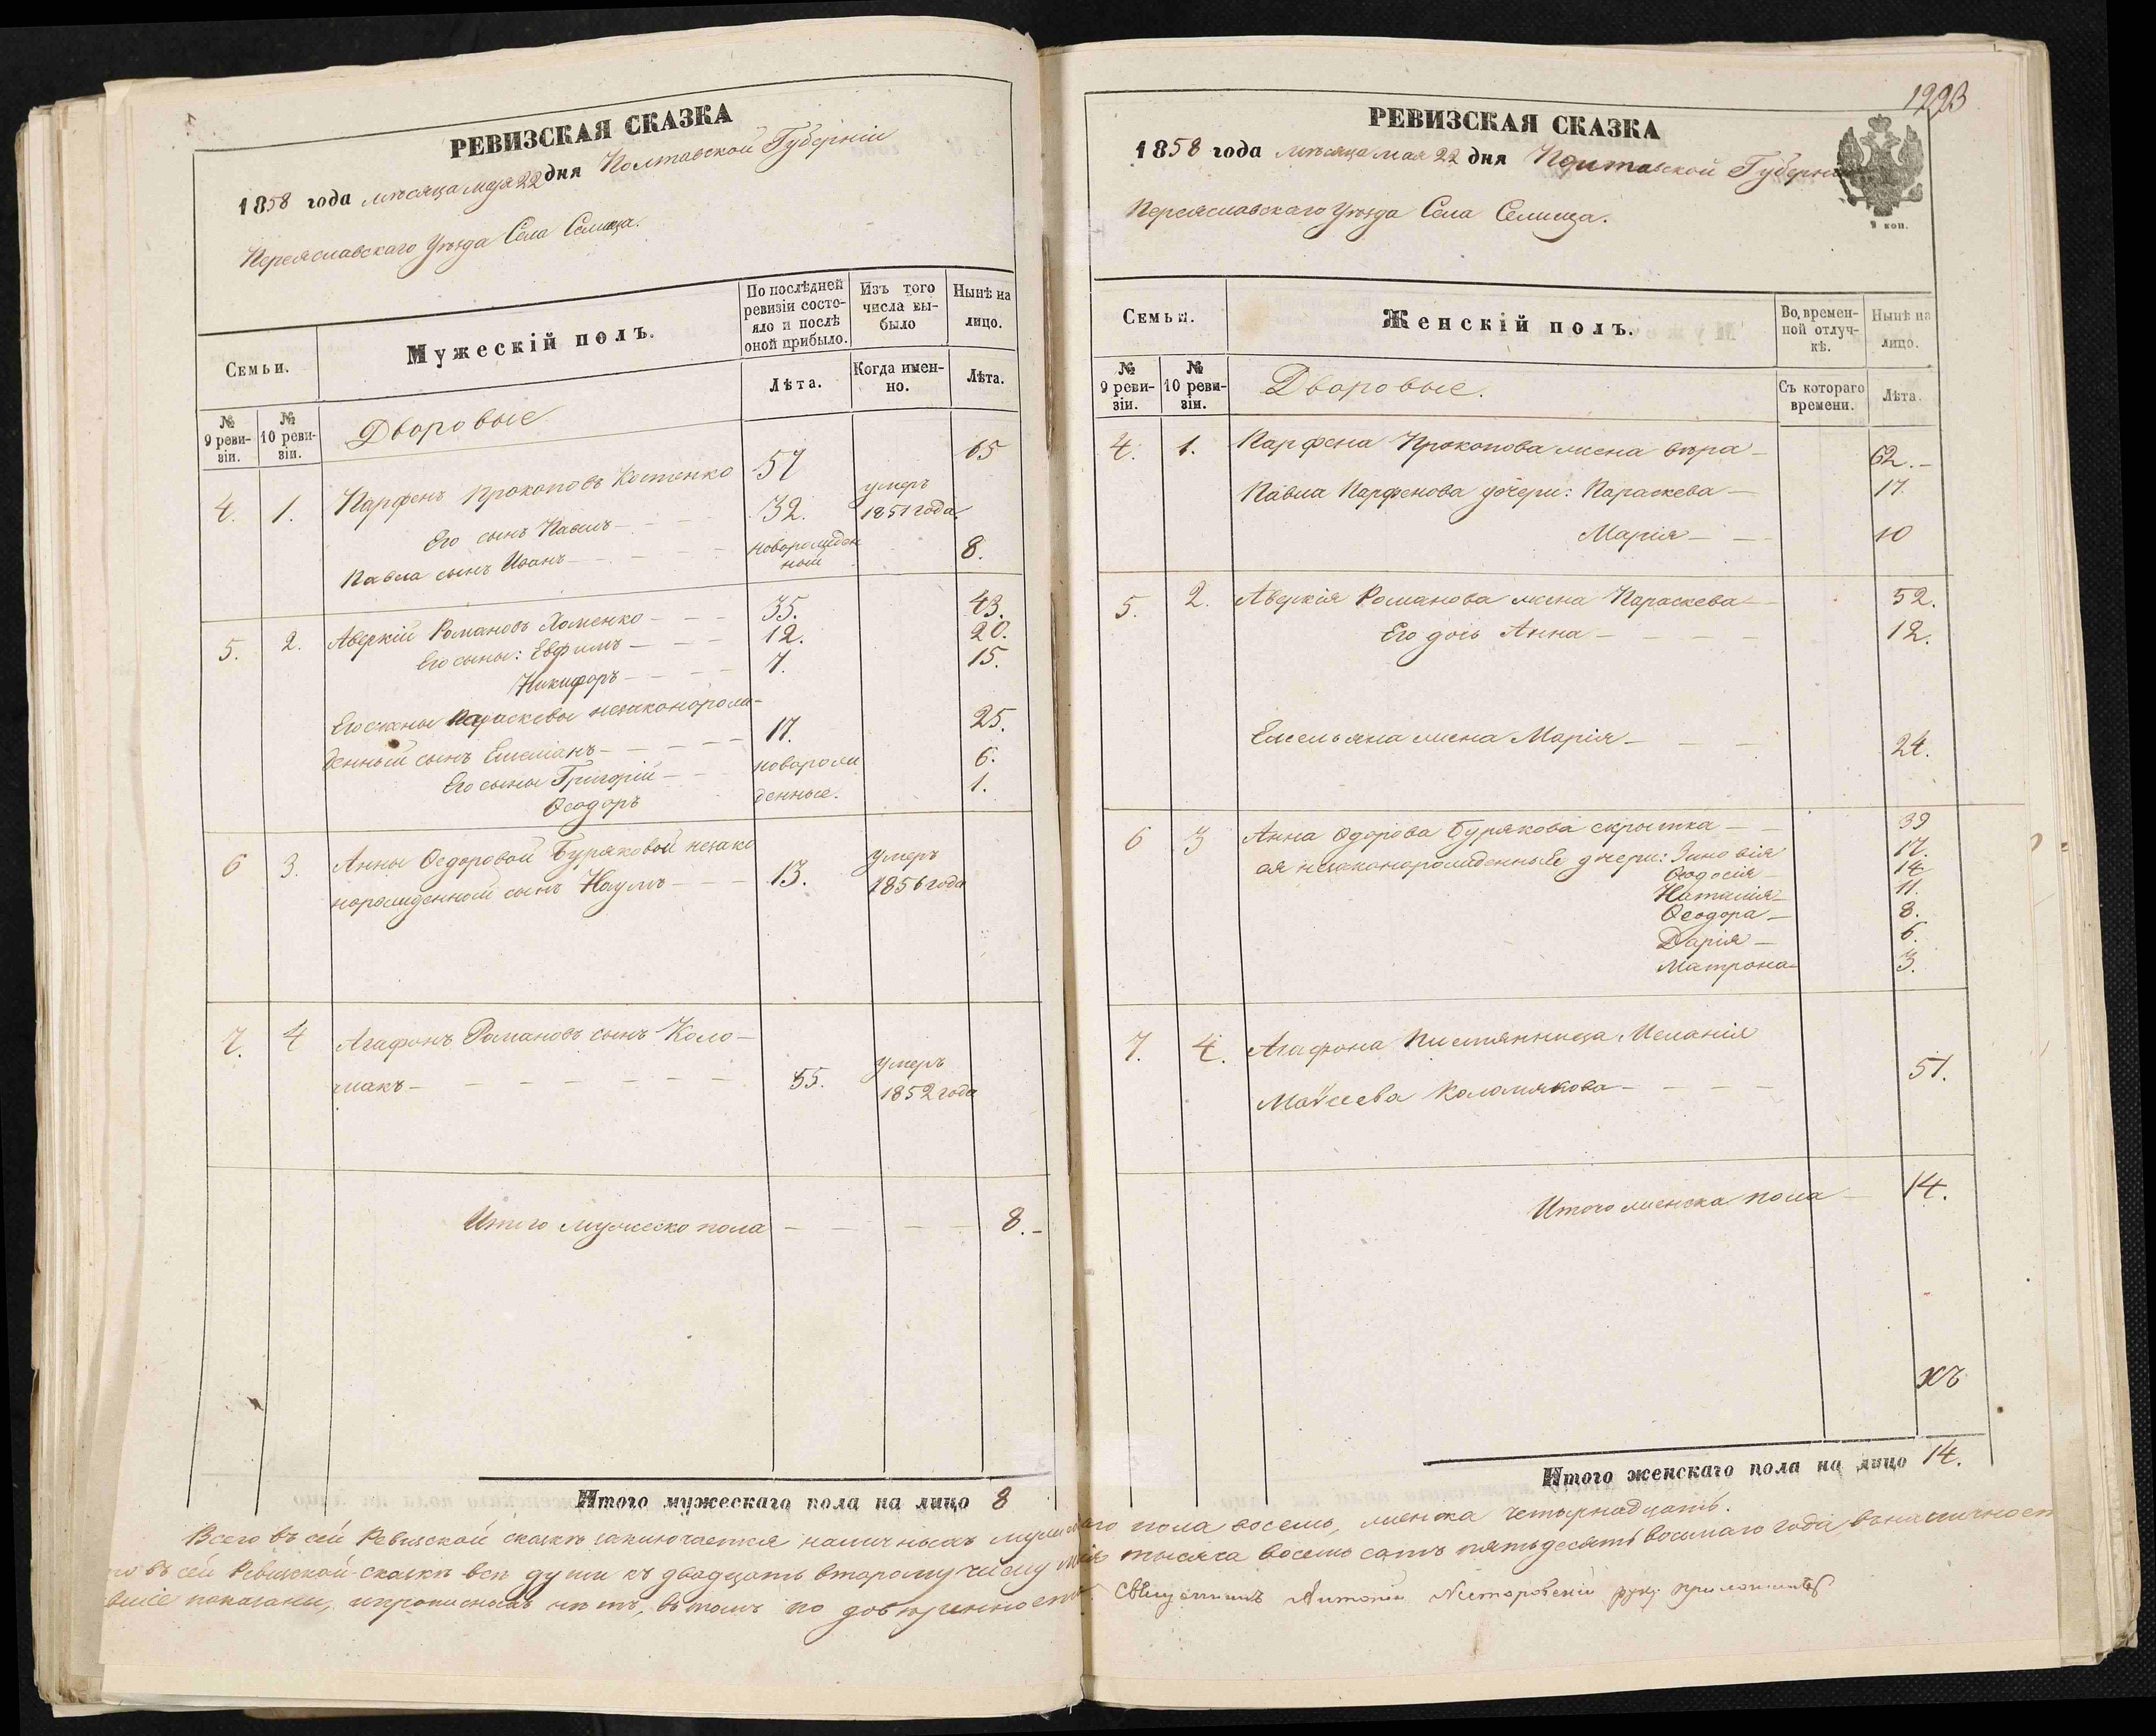 РЕВИЗСКАЯ СКАЗКА
1858 года мѣсяца мая 22 дня Полтавской Губерніи
Переяславскаго Уѣзда Села Селища.
Семьи.
Мужескій полъ.
По послѣдней ревизіи состояло и послѣ оной прибыло.
Изъ того числа выбыло
Нынѣ на лицо.
№ 9 ревизіи.
№ 10 ревизіи.
Дворовые
Лѣта.
Когда именно.
Лѣта.
4. 1. Парфенъ Прокоповъ Костенко 57 65
Его сынъ Павелъ 32. умеръ 1851 года.
Павла сынъ Иванъ новорожденный 8.
5. 2. Аверкій Романовъ Хоменко 35. 43.
Его сыны: Евфимъ 12. 20.
Никифоръ 7. 15.
Его жены Параскевы незаконорож-
денный сынъ Емельянъ 17. 25.
Его сыны Григорій новорож 6.
Ѳеодоръ денные. 1.
6 3. Анны Ѳедоровой Буряковой незако
норожденной сынъ Наумъ 13. умеръ 1856 года
7. 4 Агафонъ Романовъ сынъ Коло-
міакъ 55. умеръ 1852 года
Итого мужеско пола 8.
Итого мужескаго пола на лицо 8
1223
РЕВИЗСКАЯ СКАЗКА
1858 года мѣсяца мая 22 дня Полтавской Губерніи
Переяславскаго Уѣзда Села Селища.
9 коп.
Семьи.
Женскій полъ.
Во времен-
ной отлуч-
кѣ.
Нынѣ на
лицо.
№ 9 ревизіи.
№ 10 ревизіи.
Дворовые.
Съ котораго
времени.
Лѣта.
4. 1. Парфена Прокопова жена Вѣра 62.
Павла Парфенова дочери: Параскева 17.
Марія 10
5. 2. Аверкія Романова жена Параскева 52.
Его дочь Анна 12.
Емельяна жена Марія 24.
6 3 Анна Ѳдорова Бурякова скрытка 39
ая незаконорожденные дчери: Зиновія 17.
Ѳеодосія 14
Наталія 11.
Ѳеодора 8.
Дарія 6.
Матрона 3.
7. 4. Агафона племянница Меланія
Мойсеева Коломякова 51.
Итого женска пола 14.
Итого женскаго пола на лицо 14.
Всего въ сей Ревизской сказкѣ заключается наличныхъ мужескаго пола восемь, женска четырнадцать.
въ сей Ревизской сказкѣ всѣ души къ двадцать второму числу мая тысяча восемь сотъ пятьдесятъ восьмаго года
показаны, и прописныхъ нѣтъ, въ томъ по довѣренности Священникъ Антоній руку приложилъ